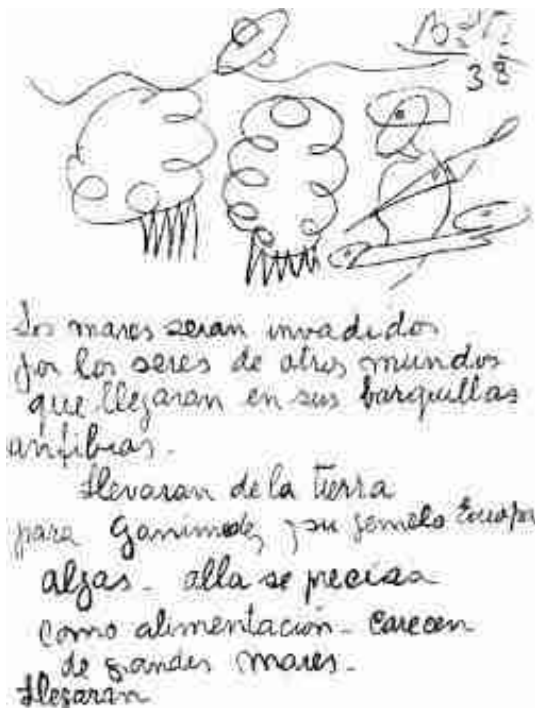 38
Los mares seran invadidos
por los seres de otros mundos
que llegaran en sus barquillas
anfibias.
Llevaran de la tierra
para Ganimedes y su gemelo Europa
algas - alla se precisa
como alimentación - carecen
de grandes mares -
Llegaran